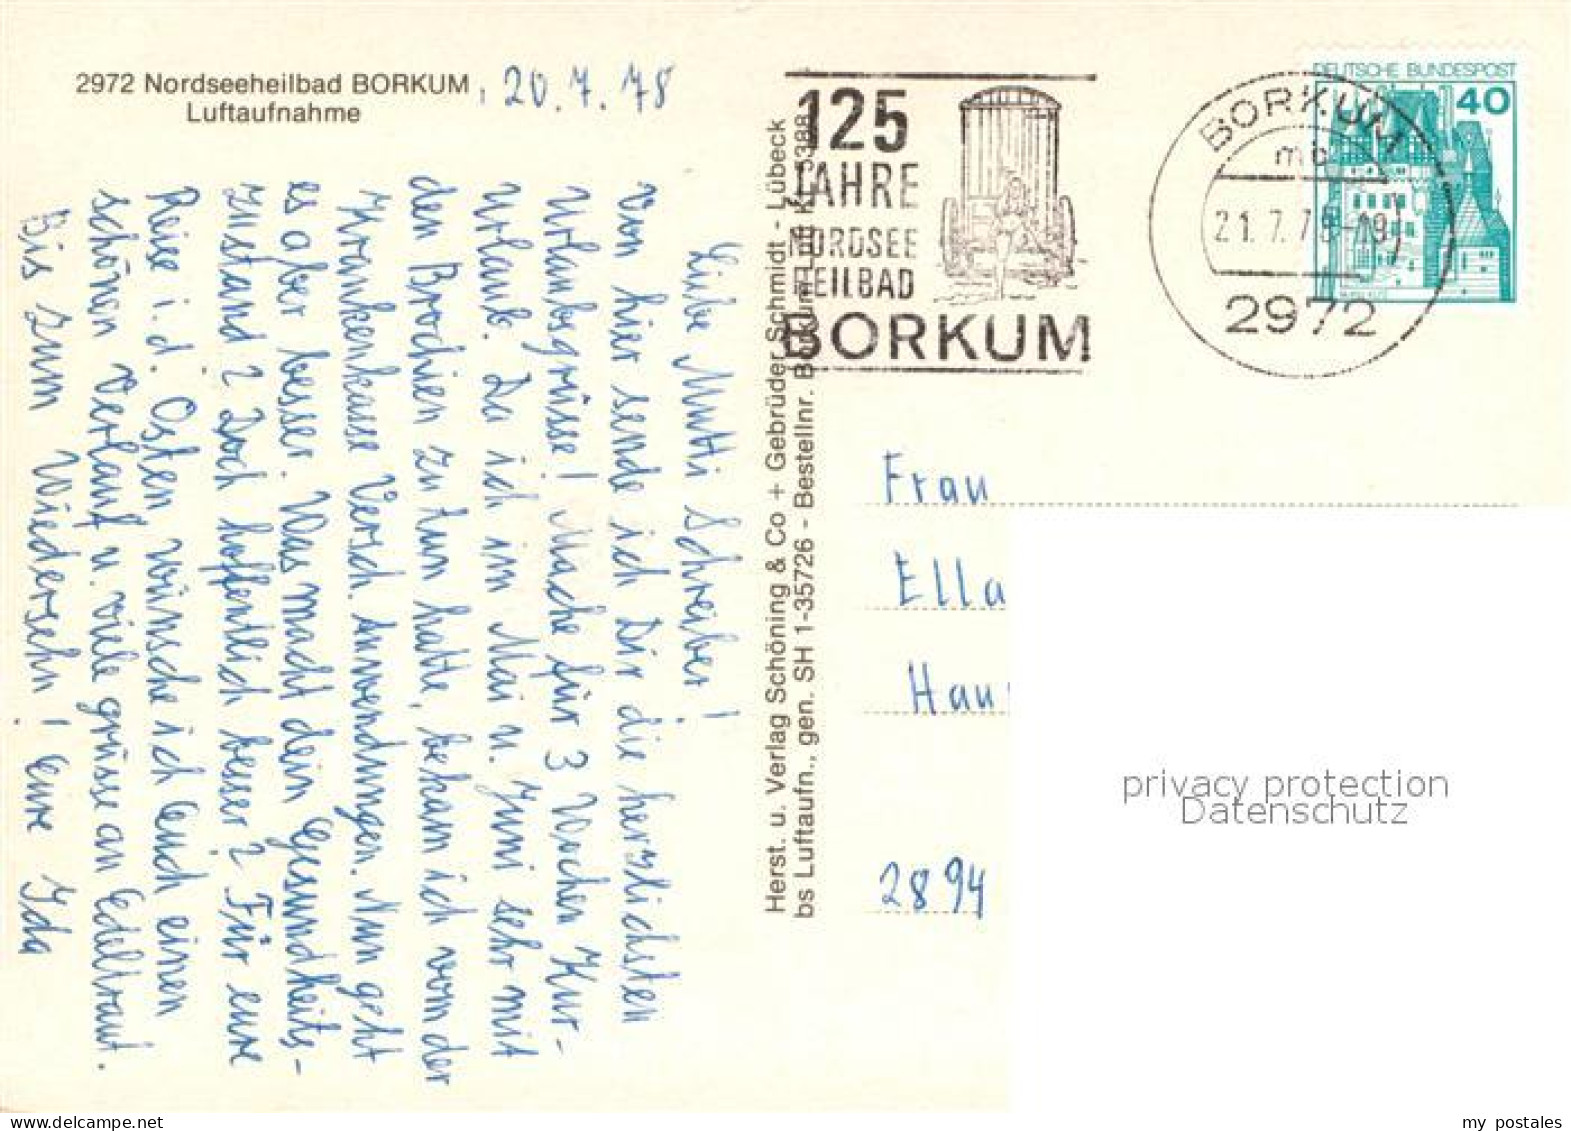 2972 Nordseeheilbad BORKUM, 20.7.78
Luftaufnahme
Liebe Mutti Schreiber!
Von hier sende ich Dir die herzlichsten
Urlaubsgrüsse! Mache für 3 Wochen Kur-
Urlaub. Da ich im Mai u. Juni sehr mit
den Brochien zu tun hatte, bekam ich von der
Krankenkasse Versch. Anwendungen. Nun geht
es aber besser. Was macht dein Gesundheits-
zustand? Doch hoffentlich besser? Für eure
Reise i. d. Osten wünsche ich Euch einen
schönen Verlauf u. viele grüsse an Edeltraut.
Bis zum Wiedersehn! Eure Ida
Herst. u. Verlag Schöning & Co + Gebrüder Schmidt - Lübeck
bs Luftaufn., gen. SH 1-35726 - Bestellnr. Borkum
125
JAHRE
NORDSEE
HEILBAD
BORKUM
BORKUM
mb
21.7.78-19
2972
DEUTSCHE BUNDESPOST
40
Frau
Ella
Hau
2894
privacy protection
Datenschutz
my postales